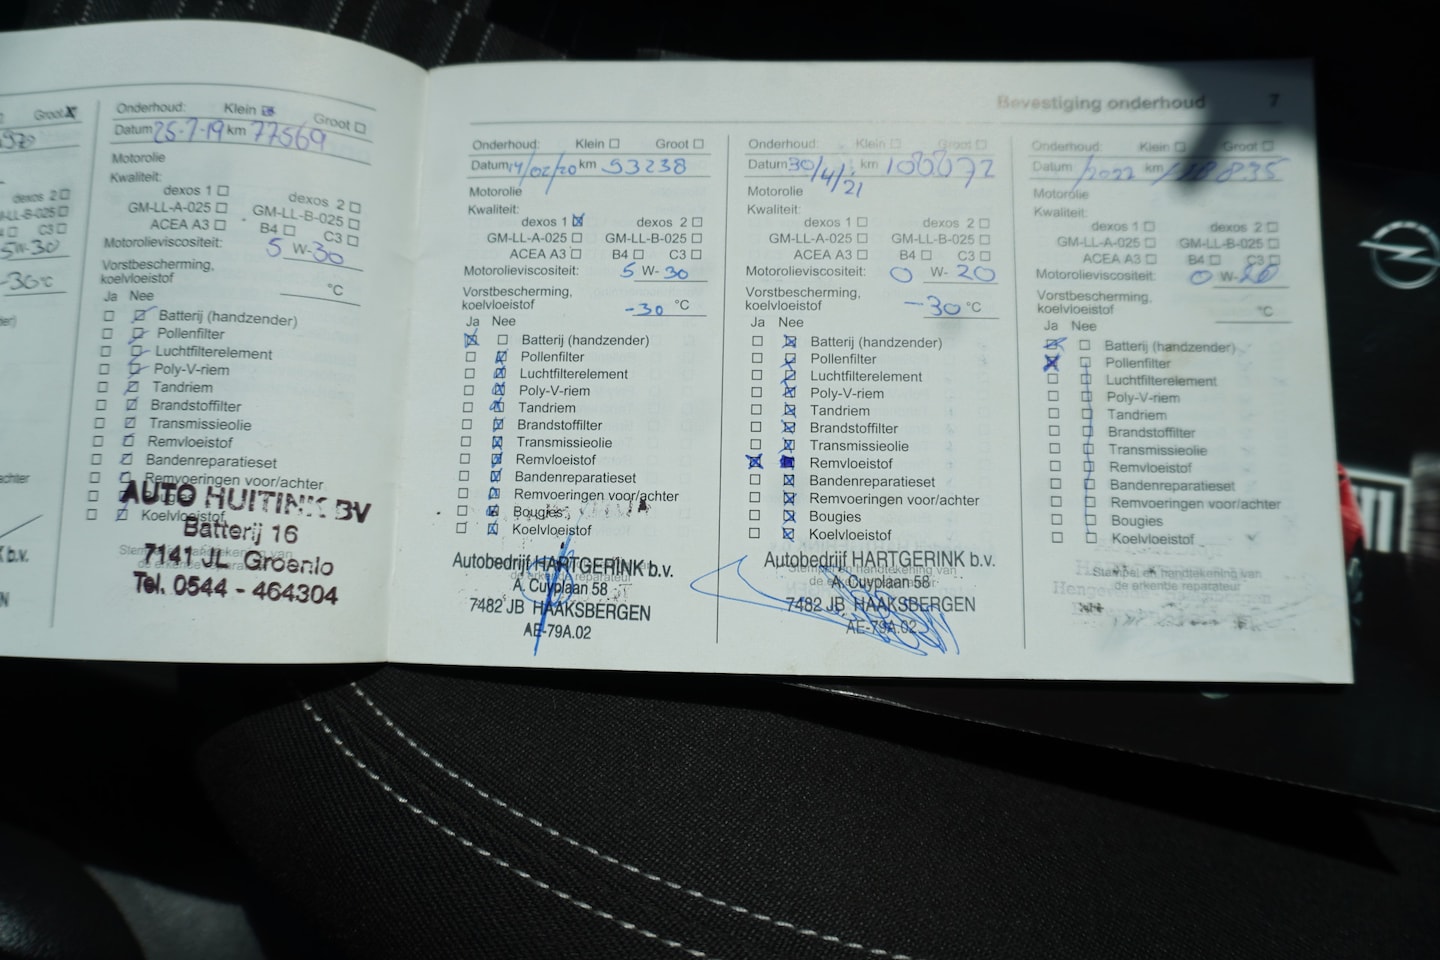 Groot
W-30
-30°C
Onderhoud: Klein Groot
Datum 25-7-19 km 77569
Motorolie
Kwaliteit:
dexos 1 dexos 2
GM-LL-A-025 GM-LL-B-025
ACEA A3 B4 C3
Motorolieviscositeit: 5 W-30
Vorstbescherming,
koelvloeistof °C
Ja Nee
Batterij (handzender)
Pollenfilter
Luchtfilterelement
Poly-V-riem
Tandriem
Brandstoffilter
Transmissieolie
Remvloeistof
Bandenreparatieset
Remvoeringen voor/achter
Bougies
Koelvloeistof
AUTO HUITINK BV
Batterij 16
7141 JL Groenlo
Tel. 0544 - 464304
Bevestiging onderhoud 7
Onderhoud: Klein Groot
Datum 14/02/20 km 53238
Motorolie
Kwaliteit:
dexos 1 dexos 2
GM-LL-A-025 GM-LL-B-025
ACEA A3 B4 C3
Motorolieviscositeit: 5 W-30
Vorstbescherming,
koelvloeistof -30 °C
Ja Nee
Batterij (handzender)
Pollenfilter
Luchtfilterelement
Poly-V-riem
Tandriem
Brandstoffilter
Transmissieolie
Remvloeistof
Bandenreparatieset
Remvoeringen voor/achter
Bougies
Koelvloeistof
Autobedrijf HARTGERINK b.v.
A. Cuyplaan 58
7482 JB HAAKSBERGEN
AE-79A.02
Onderhoud: Klein Groot
Datum 30/4/21 km 100072
Motorolie
Kwaliteit:
dexos 1 dexos 2
GM-LL-A-025 GM-LL-B-025
ACEA A3 B4 C3
Motorolieviscositeit: 0 W-20
Vorstbescherming,
koelvloeistof -30 °C
Ja Nee
Batterij (handzender)
Pollenfilter
Luchtfilterelement
Poly-V-riem
Tandriem
Brandstoffilter
Transmissieolie
Remvloeistof
Bandenreparatieset
Remvoeringen voor/achter
Bougies
Koelvloeistof
Autobedrijf HARTGERINK b.v.
Stempel en handtekening van
de erkende reparateur
A. Cuyplaan 58
7482 JB HAAKSBERGEN
AE-79A.02
Onderhoud: Klein Groot
Datum /2022 km
Motorolie
Kwaliteit:
dexos 1 dexos 2
GM-LL-A-025 GM-LL-B-025
ACEA A3 B4 C3
Motorolieviscositeit: 0 W-20
Vorstbescherming,
koelvloeistof °C
Ja Nee
Batterij (handzender)
Pollenfilter
Luchtfilterelement
Poly-V-riem
Tandriem
Brandstoffilter
Transmissieolie
Remvloeistof
Bandenreparatieset
Remvoeringen voor/achter
Bougies
Koelvloeistof
Stempel en handtekening van
de erkende reparateur